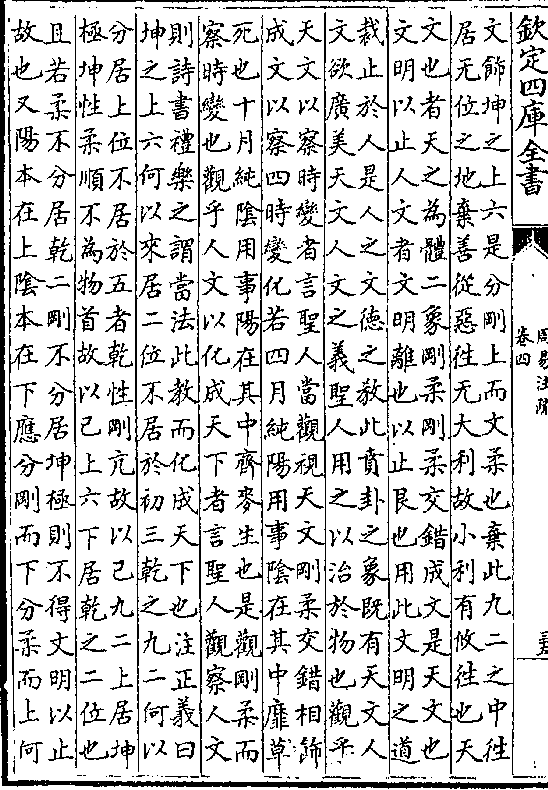 欽定四庫全書
周易注疏
卷四
三五
文飾坤之上六是分剛上而文柔也棄此九二之中往
居无位之地棄善從惡往无大利故小利有攸往也天
文也者天之為體二象剛柔剛柔交錯成文是天文也
文明以止人文者文明離也以止艮也用此文明之道
裁止於人是人之文德之教此賁卦之象既有天文人
文欲廣美天文人文之義聖人用之以治於物也觀乎
天文以察時變者言聖人當觀視天文剛柔交錯相飾
成文以察四時變化若四月純陽用事陰在其中靡草
死也十月純陰用事陽在其中齊麥生也是觀剛柔而
察時變也觀乎人文以化成天下者言聖人觀察人文
則詩書禮樂之謂當法此教而化成天下也注正義曰
坤之上六何以來居二位不居於初三乾之九二何以
分居上位不居於五者乾性剛亢故以己九二上居坤
極坤性柔順不為物首故以己上六下居乾之二位也
且若柔不分居乾二剛不分居坤極則不得文明以止
故也又陽本在上陰本在下應分剛而下分柔而上何